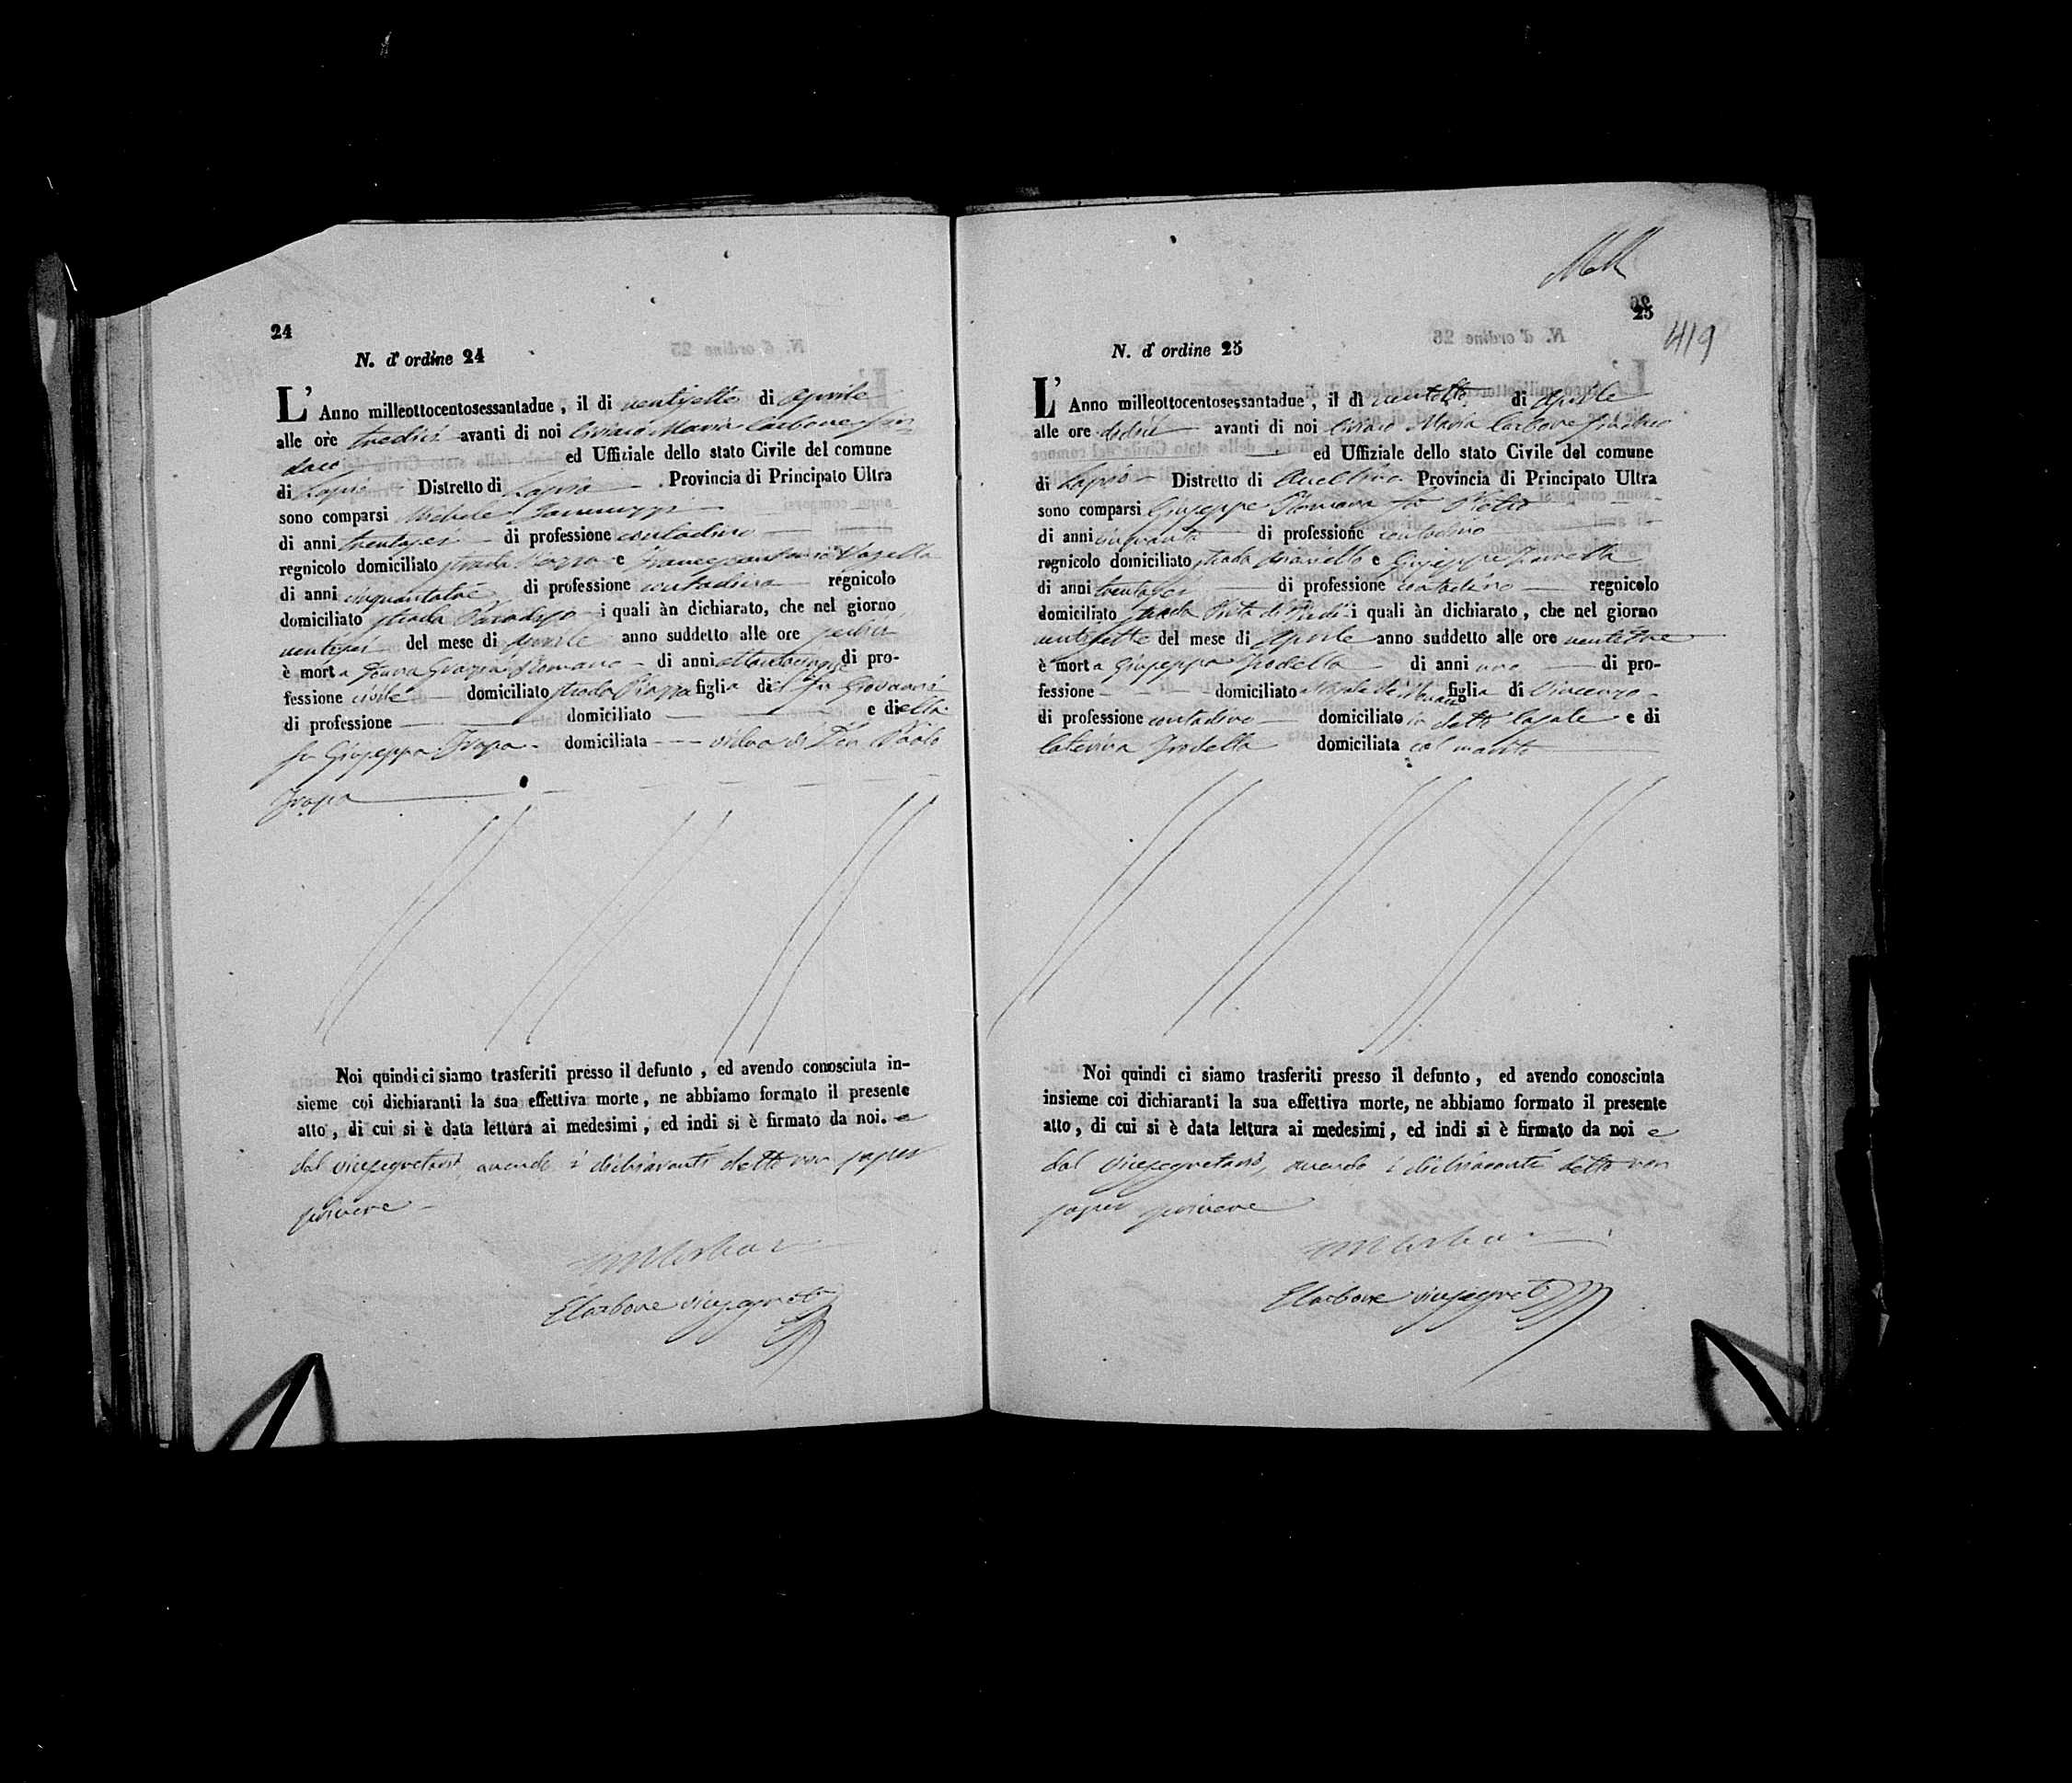 24
N. d'ordine 24
L'Anno milleottocentosessantadue, il dì ventisette di Aprile
alle ore tredici avanti di noi Ciriaco Maria Carbone Sin-
daco ed Uffiziale dello stato Civile del comune
di Lapio Distretto di Lapio Provincia di Principato Ultra
sono comparsi Michele
di anni trentasei di professione contadino
regnicolo domiciliato strada Piazza e Francescantonio
di anni cinquantatre di professione contadino regnicolo
domiciliato strada Paradiso i quali àn dichiarato, che nel giorno
ventisei del mese di Aprile anno suddetto alle ore sedici
è morta Donna Grazia Romano di anni di pro-
fessione civile domiciliato strada Piazza figlia del fu Giovanni
di professione domiciliato e di ella
fu Giuseppa domiciliata vidua di Don Paolo
Noi quindi ci siamo trasferiti presso il defunto, ed avendo conosciuta in-
sieme coi dichiaranti la sua effettiva morte, ne abbiamo formato il presente
atto, di cui si è data lettura ai medesimi, ed indi si è firmato da noi. e
dal vicesegretario, avendo i dichiaranti detto non saper
scrivere
CMCarbone
ECarbone vicesegreto
MM
25
419
N. d'ordine 25
L'Anno milleottocentosessantadue, il dì ventotto di Aprile
alle ore dodici avanti di noi Ciriaco Maria Carbone Sindaco
ed Uffiziale dello stato Civile del comune
di Lapio Distretto di Avellino Provincia di Principato Ultra
sono comparsi Giuseppe Romano fu Pietro
di anni cinquanta di professione contadino
regnicolo domiciliato strada e Giuseppe
di anni trentasei di professione contadino regnicolo
domiciliato strada i quali àn dichiarato, che nel giorno
ventisette del mese di Aprile anno suddetto alle ore ventitre
è morta Giuseppa Iodella di anni uno di pro-
fessione domiciliato figlia di Vincenzo
di professione contadino domiciliato in detto Casale e di
Caterina Iodella domiciliata col marito
Noi quindi ci siamo trasferiti presso il defunto, ed avendo conosciuta
insieme coi dichiaranti la sua effettiva morte, ne abbiamo formato il presente
atto, di cui si è data lettura ai medesimi, ed indi si è firmato da noi e
dal vicesegretario, avendo i dichiaranti detto non
saper scrivere
CMCarbone
ECarbone vicesegreto